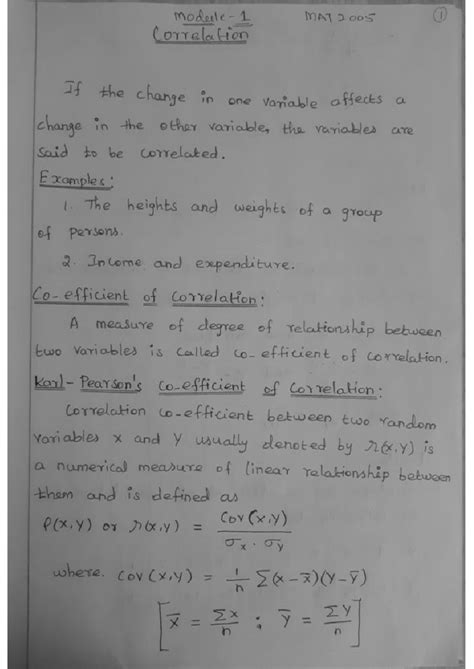 Module-1 MAT2005 1
Correlation
If the change in one variable affects a
change in the other variable, the variables are
said to be correlated.
Examples:
1. The heights and weights of a group
of persons.
2. Income and expenditure.
Co-efficient of Correlation:
A measure of degree of relationship between
two variables is called co-efficient of correlation.
Karl-Pearson's co-efficient of Correlation:
Correlation co-efficient between two random
variables x and y usually denoted by r(x,y) is
a numerical measure of linear relationship between
them and is defined as
ρ(x,y) or r(x,y) = Cov(x,y) / σx . σy
where. Cov(x,y) = 1/n Σ(x-x̄)(y-ȳ)
[x̄ = Σx/n ; ȳ = Σy/n]